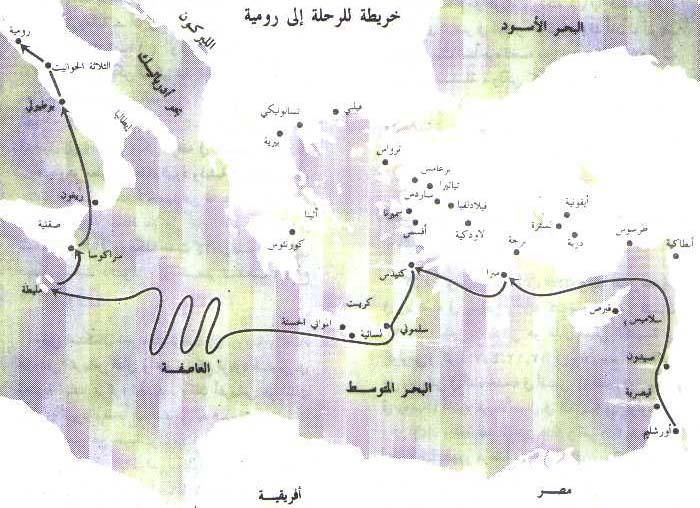 خريطة للرحلة إلى رومية
البحر الأسود
الليركون
رومية
الثلاثة الحوانيت
بحر أدرياتيك
بوطيولي
إيطاليا
ريغون
صقلية
سراكوسا
مليطة
فيلبي
تسالونيكي
بيرية
ترواس
برغامس
تياتيرا
ساردس
فيلادلفيا
سميرنا
أفسس
لاودكية
أثينا
كورنثوس
أيقونية
لسترة
دربة
برجة
طرسوس
أنطاكية
كنيدس
ميرا
قبرص
سلاميس
كريت
المواني الحسنة
لسائية
سلموني
صيدون
قيصرية
أورشليم
العاصفة
البحر المتوسط
أفريقية
مصر